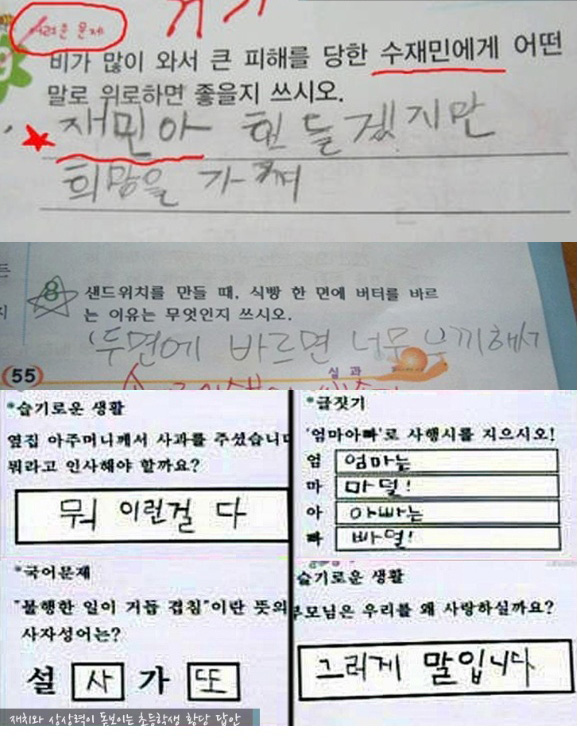 어려운 문제
비가 많이 와서 큰 피해를 당한 수재민에게 어떤
말로 위로하면 좋을지 쓰시오.
재민아 힘들겠지만
희망을 가져
8 샌드위치를 만들 때, 식빵 한 면에 버터를 바르
는 이유는 무엇인지 쓰시오.
두면에 바르면 너무 느끼해서
실 과
55
*슬기로운 생활
옆집 아주머니께서 사과를 주셨습니다
뭐라고 인사해야 할까요?
뭐 이런걸 다
*글짓기
'엄마아빠'로 사행시를 지으시오!
엄 엄마는
마 마덜!
아 아빠는
빠 빠덜!
*국어문제
"불행한 일이 거듭 겹침"이란 뜻의
사자성어는?
설 사 가 또
슬기로운 생활
부모님은 우리를 왜 사랑하실까요?
그러게 말입니다
재치와 상상력이 돋보이는 초등학생 황당 답안